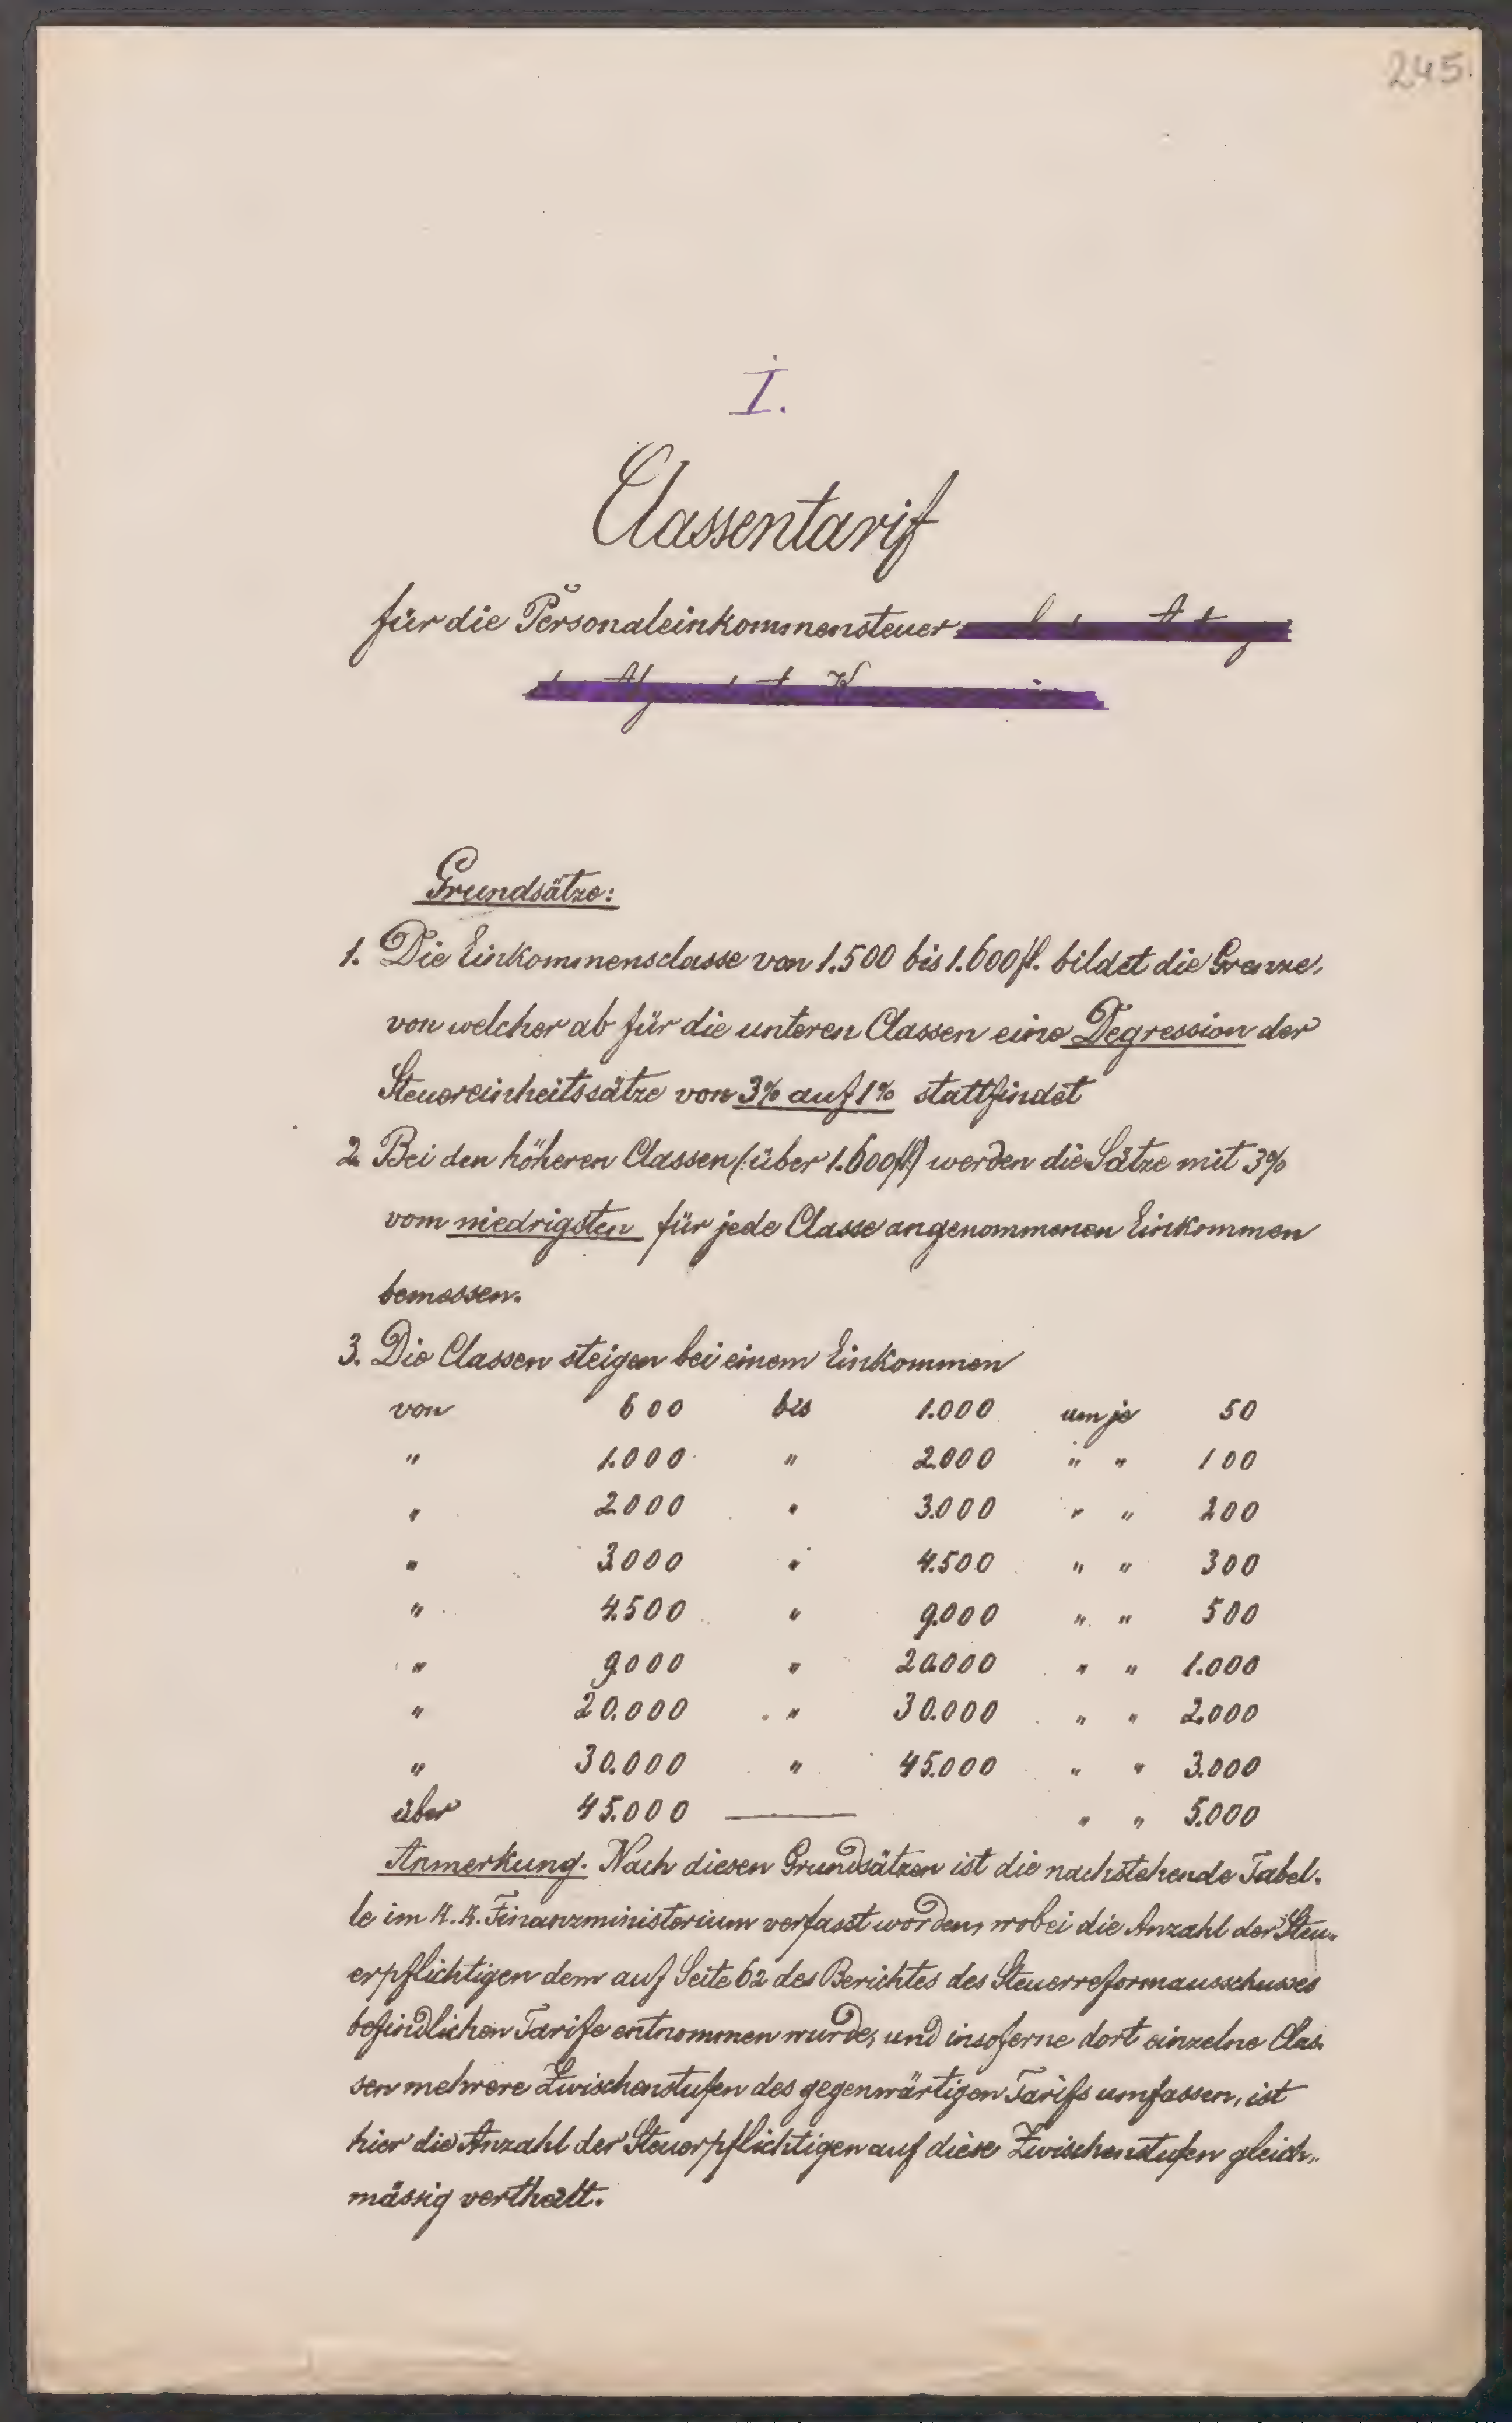 245.
I.
Classentarif
für die Personaleinkommensteuer
Grundsätze:
1. Die Einkommensclasse von 1.500 bis 1.600 fl. bildet die Grenze,
von welcher ab für die unteren Classen eine Degression der
Steuereinheitssätze von 3% auf 1% stattfindet
2. Bei den höheren Classen (über 1.600 fl) werden die Sätze mit 3%
vom niedrigsten für jede Classe angenommenen Einkommen
bemessen.
3. Die Classen steigen bei einem Einkommen
von 600 bis 1.000 um je 50
" 1.000 " 2.000 " " 100
" 2.000 " 3.000 " " 200
" 3.000 " 4.500 " " 300
" 4.500 " 9.000 " " 500
" 9.000 " 20.000 " " 1.000
" 20.000 " 30.000 " " 2.000
" 30.000 " 45.000 " " 3.000
über 45.000 — " " 5.000
Anmerkung. Nach diesen Grundsätzen ist die nachstehende Tabel-
le im k. k. Finanzministerium verfasst worden, wobei die Anzahl der Steu-
erpflichtigen dem auf Seite 62 des Berichtes des Steuerreformausschusses
befindlichen Tarife entnommen wurde, und insoferne dort einzelne Clas-
sen mehrere Zwischenstufen des gegenwärtigen Tarifs umfassen, ist
hier die Anzahl der Steuerpflichtigen auf diese Zwischenstufen gleich-
mässig vertheilt.